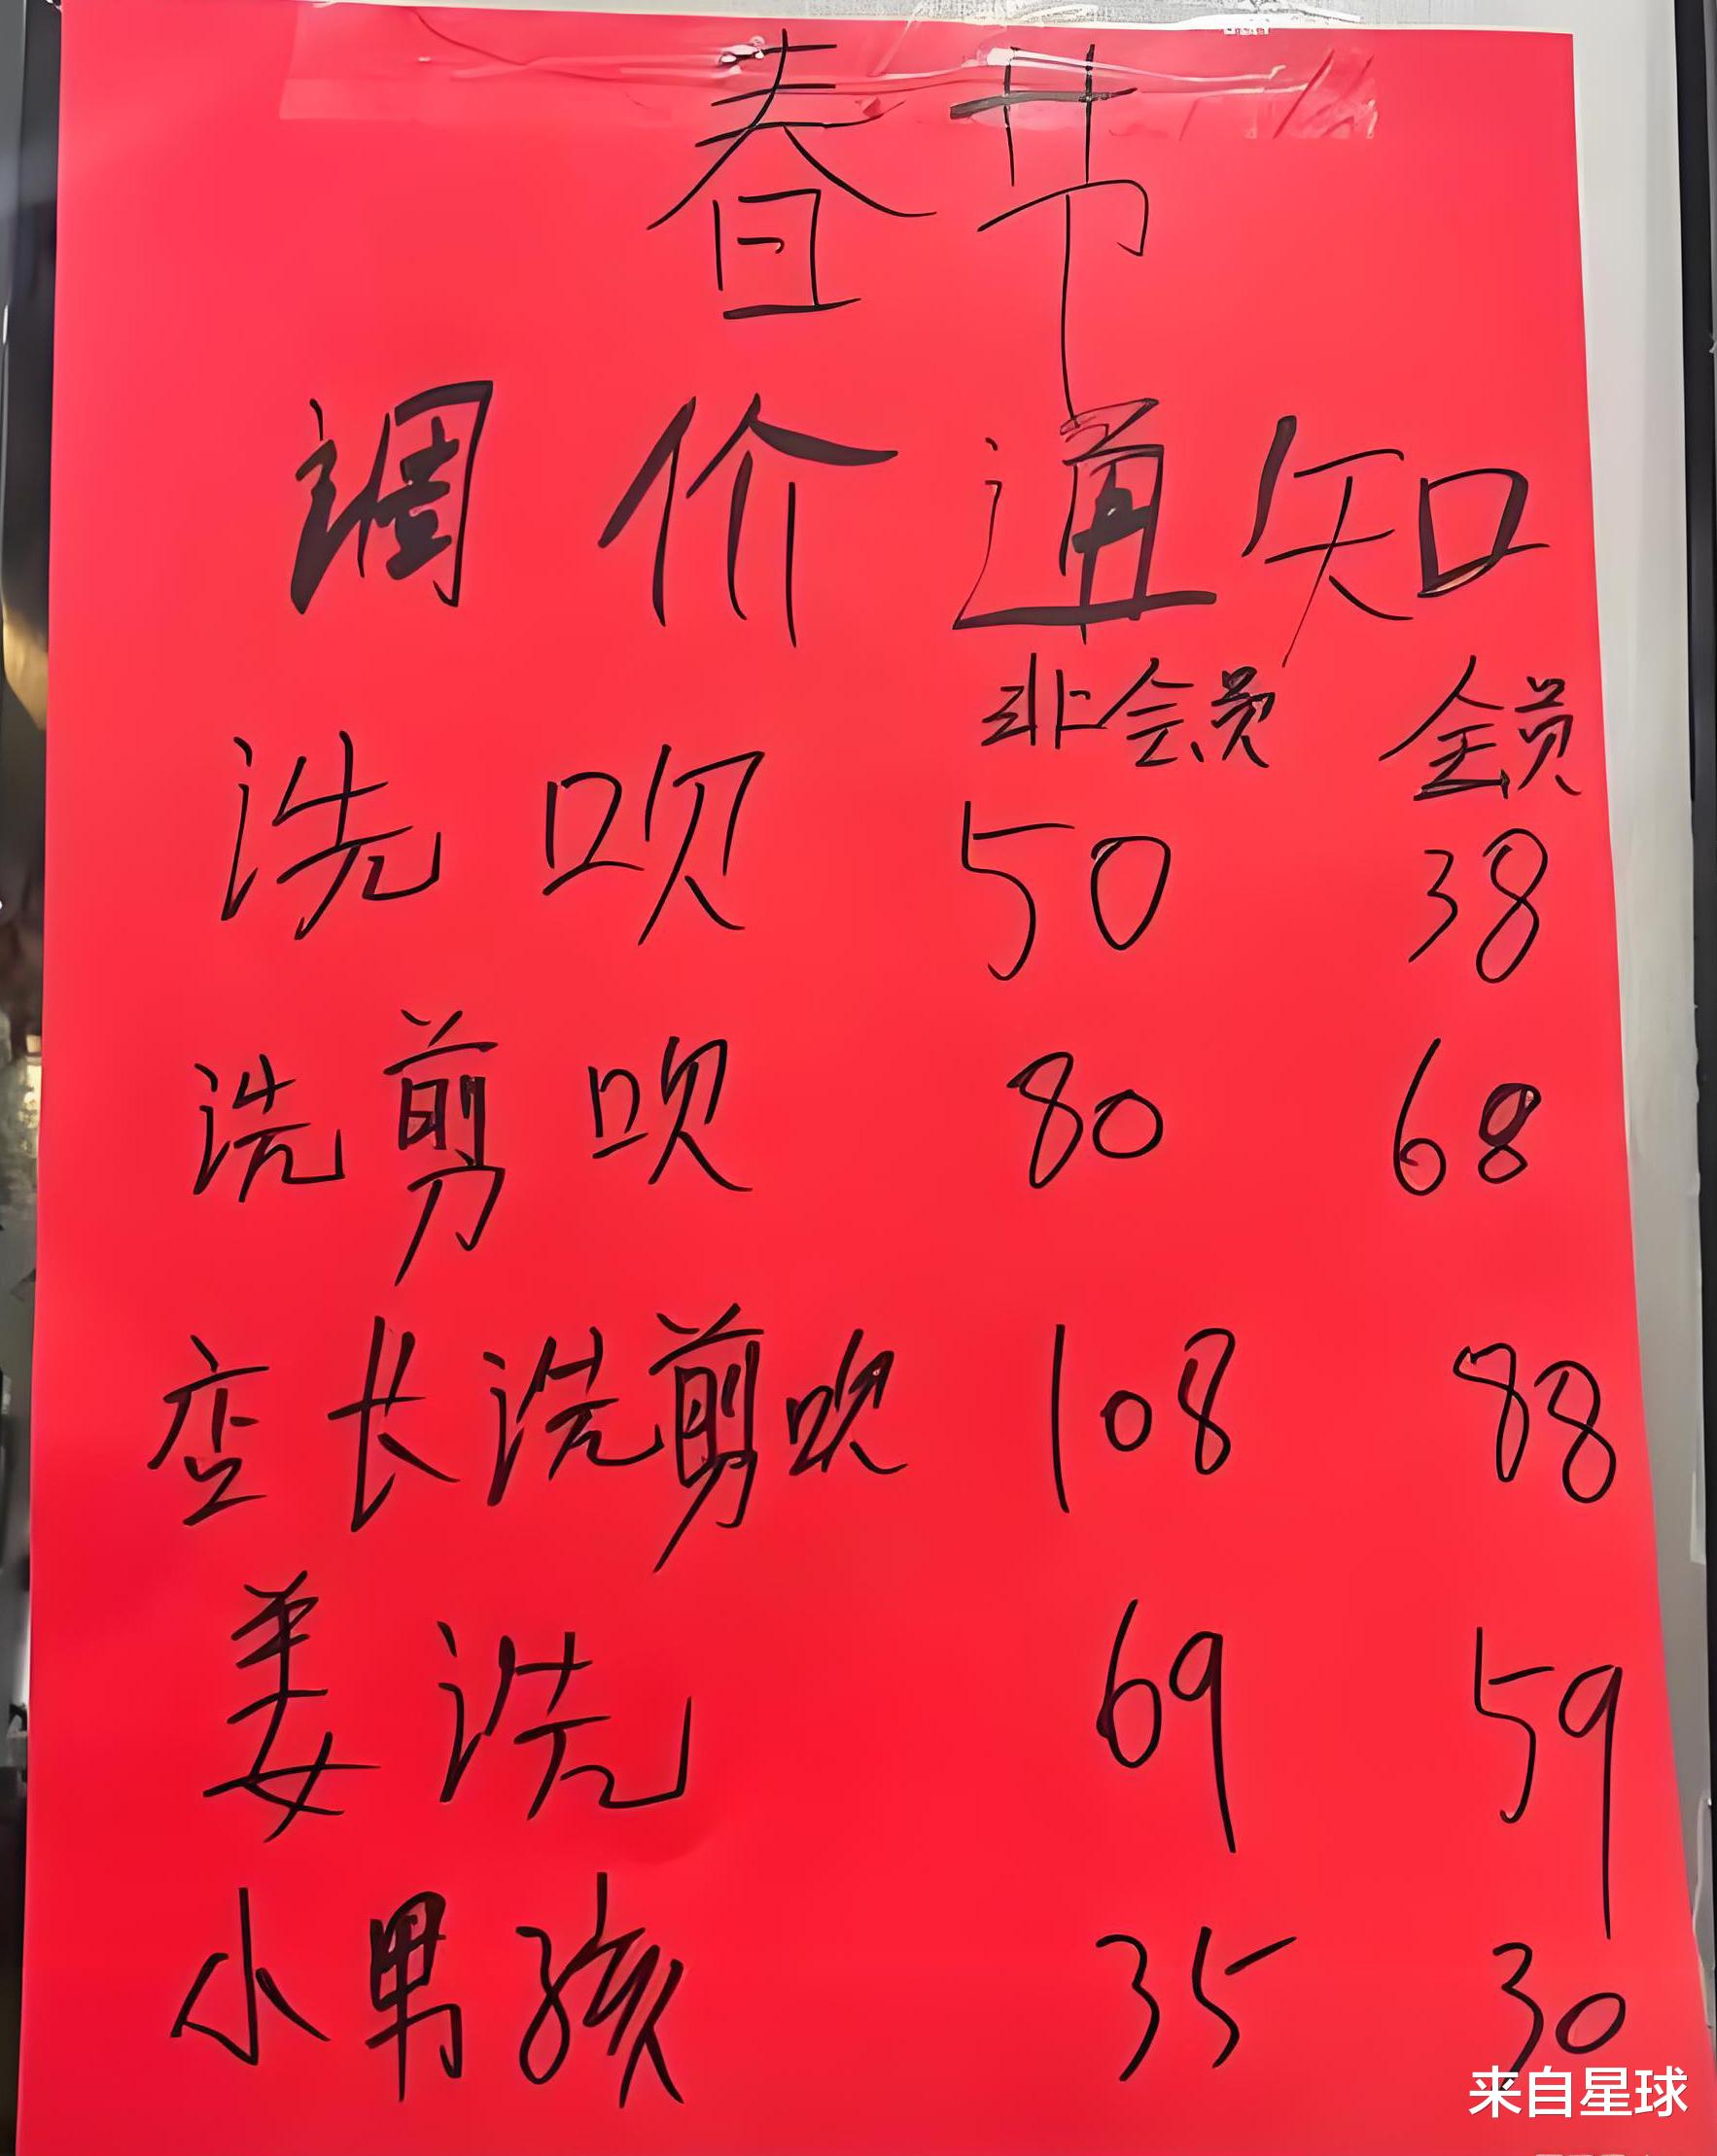 春节
调价通知
非会员 会员
洗吹 50 38
洗剪吹 80 68
变长洗剪吹 108 88
姜洗 69 59
小男孩 35 30
来自星球